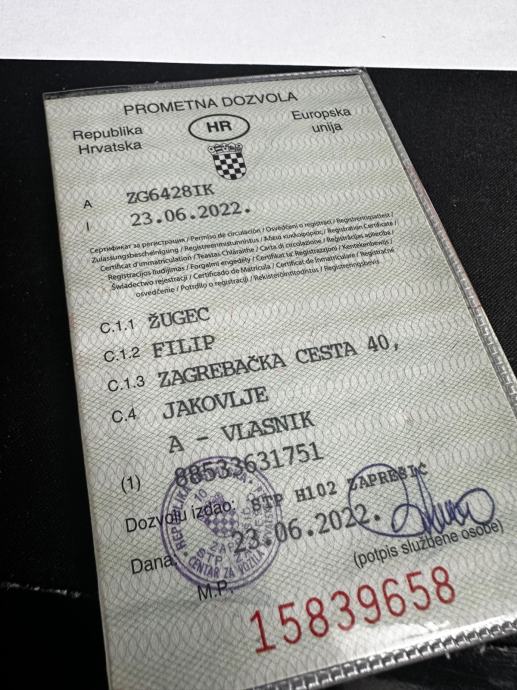 PROMETNA DOZVOLA
Republika Hrvatska
HR
Europska unija
A ZG6428IK
I 23.06.2022.
Сертификат за регистрация / Permiso de circulación / Osvědčení o registraci / Registreringsattest /
Zulassungsbescheinigung / Registreerimistunnistus / Άδεια κυκλοφορίας / Registration Certificate /
Certificat d'immatriculation / Teastas Cláraithe / Carta di circolazione / Reģistrācijas apliecība /
Registracijos liudijimas / Forgalmi engedély / Ċertifikat ta' Reġistrazzjoni / Kentekenbewijs /
Świadectwo rejestracji / Certificado de Matrícula / Certificat de înmatriculare / Registračné
osvedčenie / Potrdilo o registraciji / Rekisteröintitodistus / Registreringsbevis
C.1.1 ŽUGEC
C.1.2 FILIP
C.1.3 ZAGREBAČKA CESTA 40,
JAKOVLJE
C.4. A - VLASNIK
(1) 88533631751
Dozvolu izdao: STP H102 ZAPREŠIĆ
Dana: 23.06.2022.
(potpis službene osobe)
M.P.
15839658